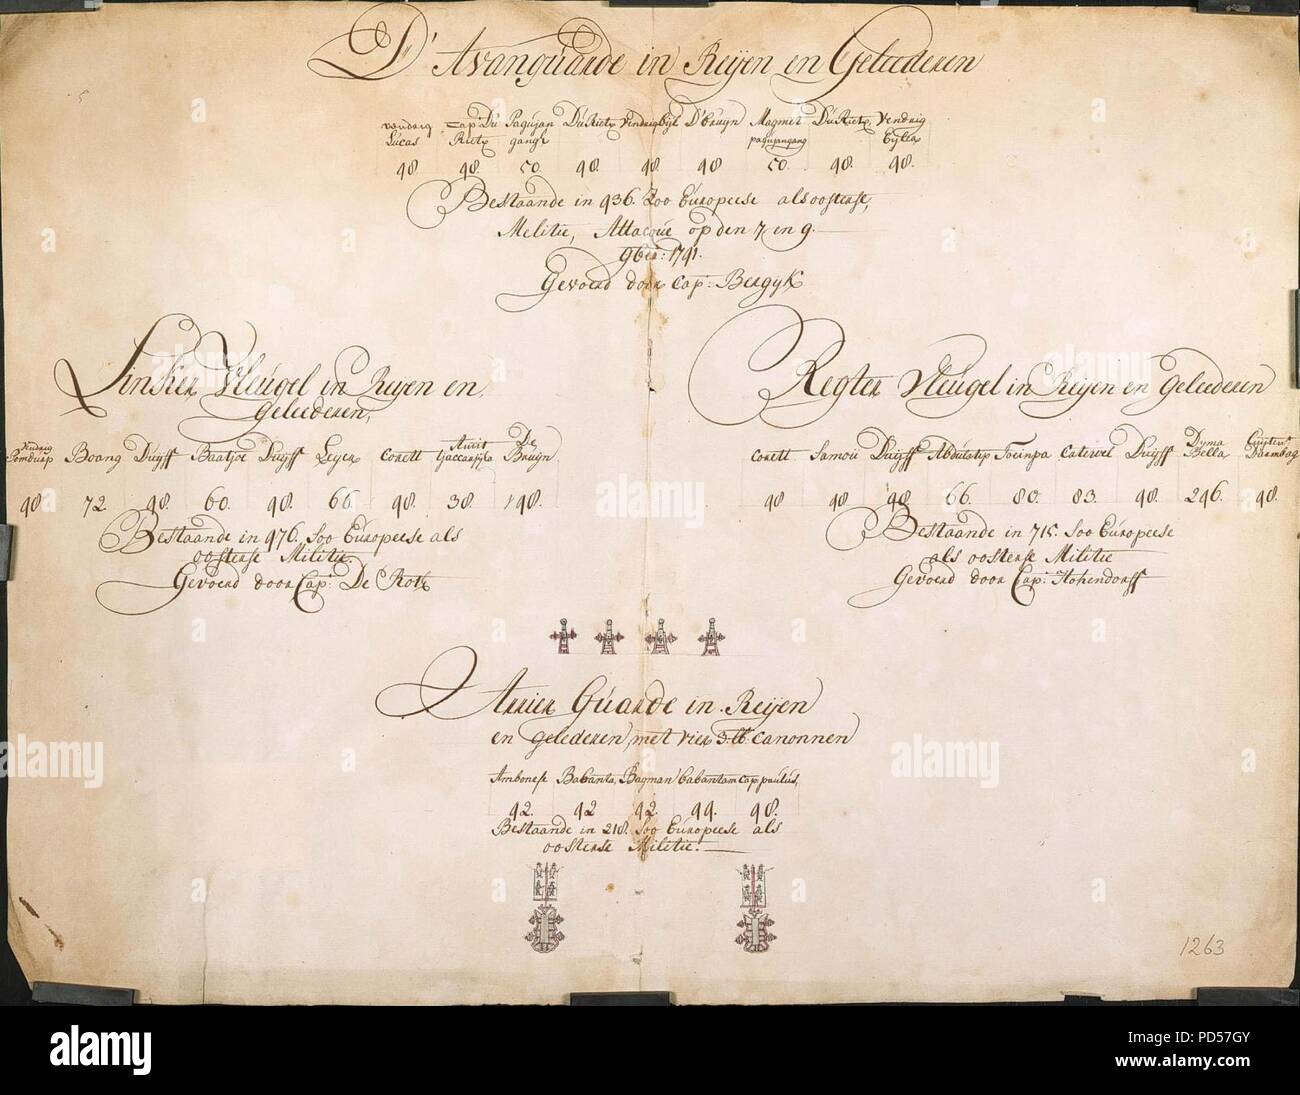 D' Avanguarde in Reijen en Geleederen
vendrig Lucas Cap: Du Rietx Pagujan gangh Du Rietx Vendrig Eijk D'Bruijn Magmet pagujangang Du Rietx, Vendrig Eijlla
48. 48. 50. 48. 48. 48 50. 48. 48.
Bestaande in 436. Zoo Europeese als oosterse,
Melitie, Attacque op den 7 en 9.
9ber: 1741.
Gevoerd door Cap: Bergijk
Linker Vleugel in Reijen en
geleederen,
Vendrig Pomdurp Boang Duijff Baatjoe Duijff Leijer Corett Amit Tjaccarsijka De Bruijn
48 72 48. 60. 48. 66. 48. 38. 148.
Bestaande in 476. Soo Europeese als
oosterse Militie.
Gevoerd door Cap: De Rotx
Regter Vleugel in Reijen en geleederen
Corett Samou Duijff Abdulatip Toeinpa Cateweel Duijff Dijma Bella Luijtent Daambag
48 48 48 66. 80. 83. 48. 246. 48.
Bestaande in 715. Soo Europeese
als oosterse Militie
Gevoerd door Cap: Hohendorff
Arrier Guarde in Reijen
en geleederen, met vier 3. lb. canonnen
Ambonese Babanta, Bagman Cabantam Cap: paulus,
42. 42 42. 44. 48.
Bestaande in 218. Soo Europeese als
oosterse Militie.
1263
alamy
Image ID: PD57GY
www.alamy.com